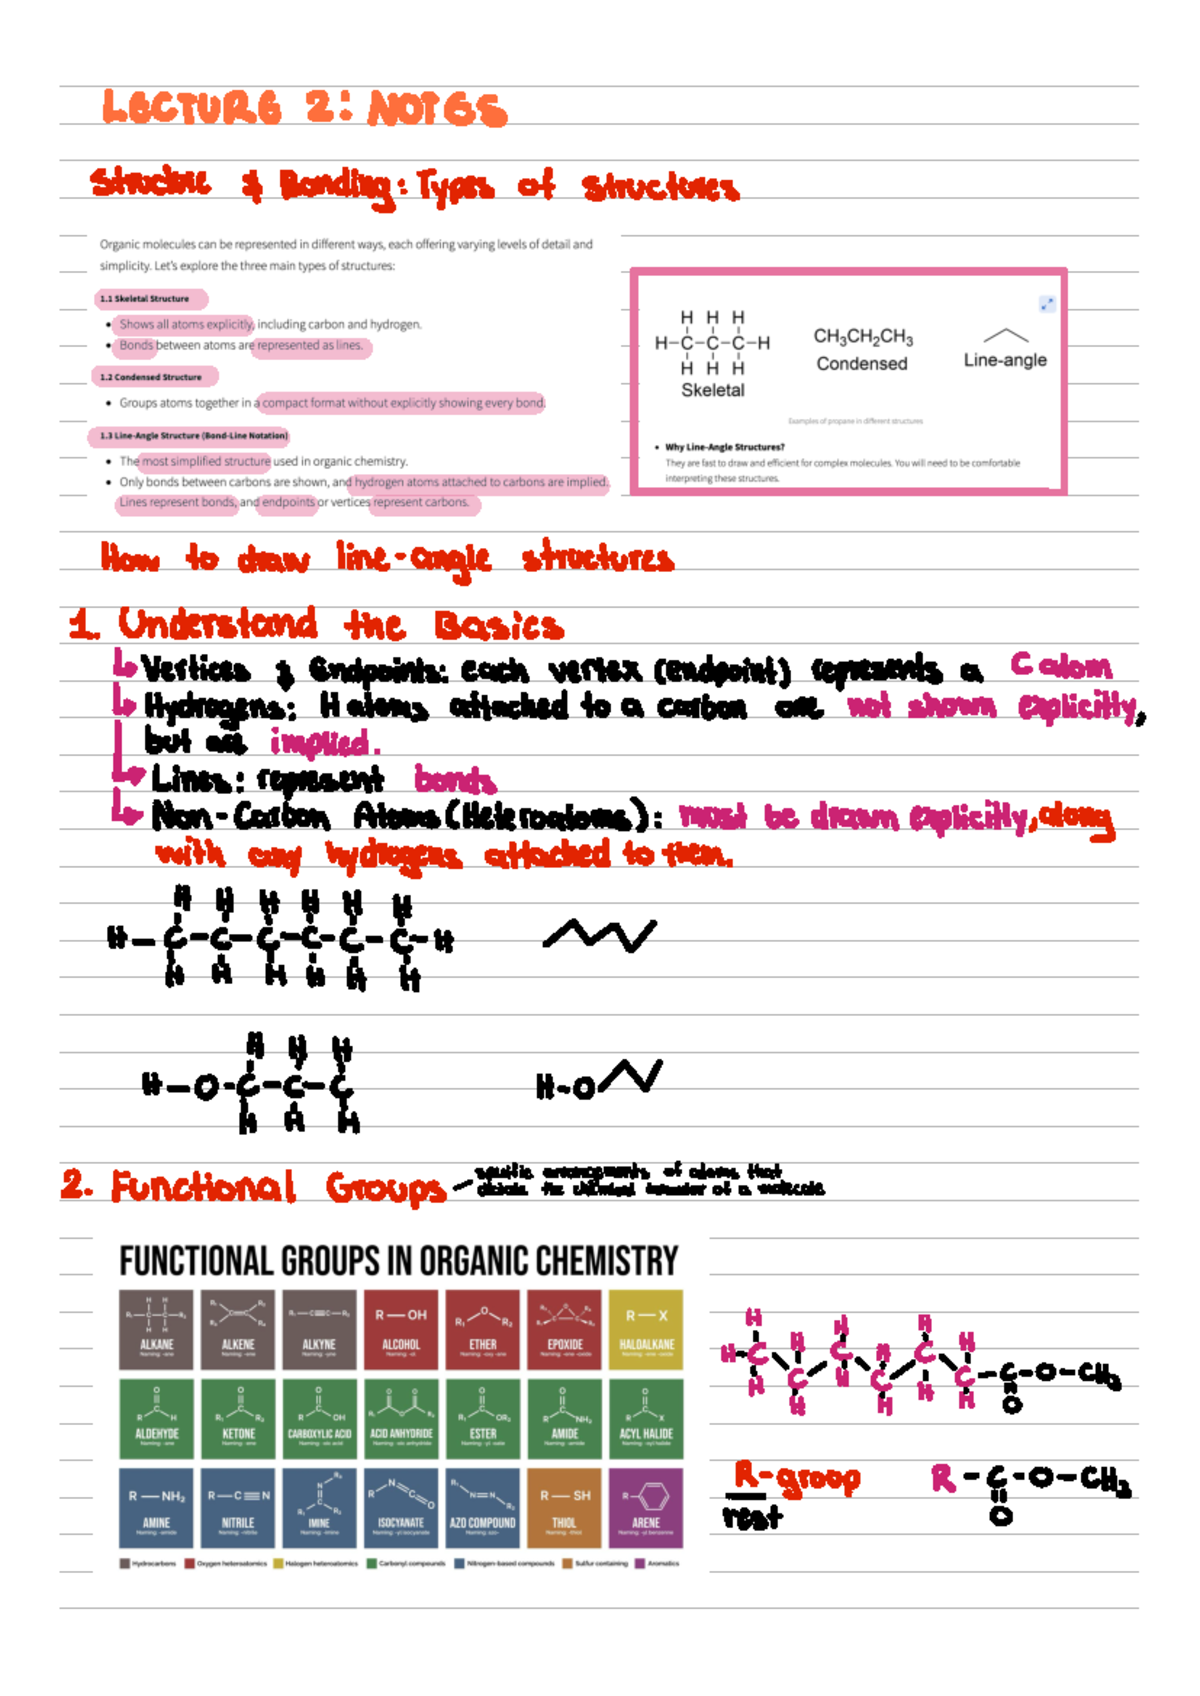 LECTURE 2: NOTES
Structure & Bonding: Types of structures
Organic molecules can be represented in different ways, each offering varying levels of detail and
simplicity. Let's explore the three main types of structures:
1.1 Skeletal Structure
• Shows all atoms explicitly, including carbon and hydrogen.
• Bonds between atoms are represented as lines.
1.2 Condensed Structure
• Groups atoms together in a compact format without explicitly showing every bond.
1.3 Line-Angle Structure (Bond-Line Notation)
• The most simplified structure used in organic chemistry.
• Only bonds between carbons are shown, and hydrogen atoms attached to carbons are implied.
Lines represent bonds, and endpoints or vertices represent carbons.
H H H
H-C-C-C-H
H H H
Skeletal
CH₃CH₂CH₃
Condensed
Line-angle
Examples of propane in different structures
• Why Line-Angle Structures?
They are fast to draw and efficient for complex molecules. You will need to be comfortable
interpreting these structures.
How to draw line-angle structures
1. Understand the Basics
Vertices & Endpoints: each vertex (endpoint) represents a C atom
Hydrogens: H atoms attached to a carbon are not shown explicitly,
but are implied.
Lines: represent bonds
Non-Carbon Atoms (Heteroatoms): must be drawn explicitly, along
with any hydrogens attached to them.
H H H H H H
H-C-C-C-C-C-C-H
H H H H H H
H H H
H-O-C-C-C
H H H
H-O
2. Functional Groups - specific arrangements of atoms that
dictate the chemical behavior of a molecule
FUNCTIONAL GROUPS IN ORGANIC CHEMISTRY
ALKANE
Naming: -ane
ALKENE
Naming: -ene
ALKYNE
Naming: -yne
R—OH
ALCOHOL
Naming: -ol
R₁ O R₂
ETHER
EPOXIDE
R—X
HALOALKANE
O R H
ALDEHYDE
O R₁ R₂
KETONE
Naming: -one
O R OH
CARBOXYLIC ACID
Naming: -oic acid
ACID ANHYDRIDE
O R₁ OR₂
ESTER
O R NH₂
AMIDE
Naming: -amide
O R X
ACYL HALIDE
R—NH₂
AMINE
R—C≡N
NITRILE
Naming: -nitrile
IMINE
ISOCYANATE
AZO COMPOUND
R—SH
THIOL
Naming: -thiol
R
ARENE
Hydrocarbons
Oxygen heteroatomics
Halogen heteroatomics
Carbonyl compounds
Nitrogen-based compounds
Sulfur containing
Aromatics
H H H H H H
H C C C C C C - C - O - CH₃
H H H H H H O
R-group
rest
R - C - O - CH₃
O